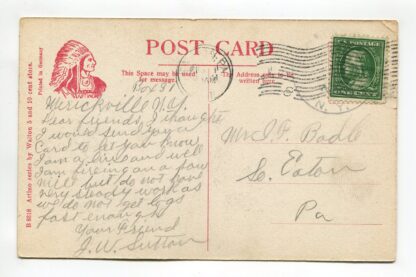 POST CARD
This Space may be used
for message.
The Address only to be
written here
B 6018 Artino series by Walton 5 and 10 cent store.
Printed in Germany
Box 31
N.Y.
Dear friends, I thought
I would send you a
Card to let you know
I am alive and well
I am fireing on a saw
mill but do not have
very steady work as
we do not get logs
fast enough
Your Friend
J. W. Sutton
Mr I F Badle
So. Eaton
Pa
U.S. POSTAGE
ONE CENT
N. Y.